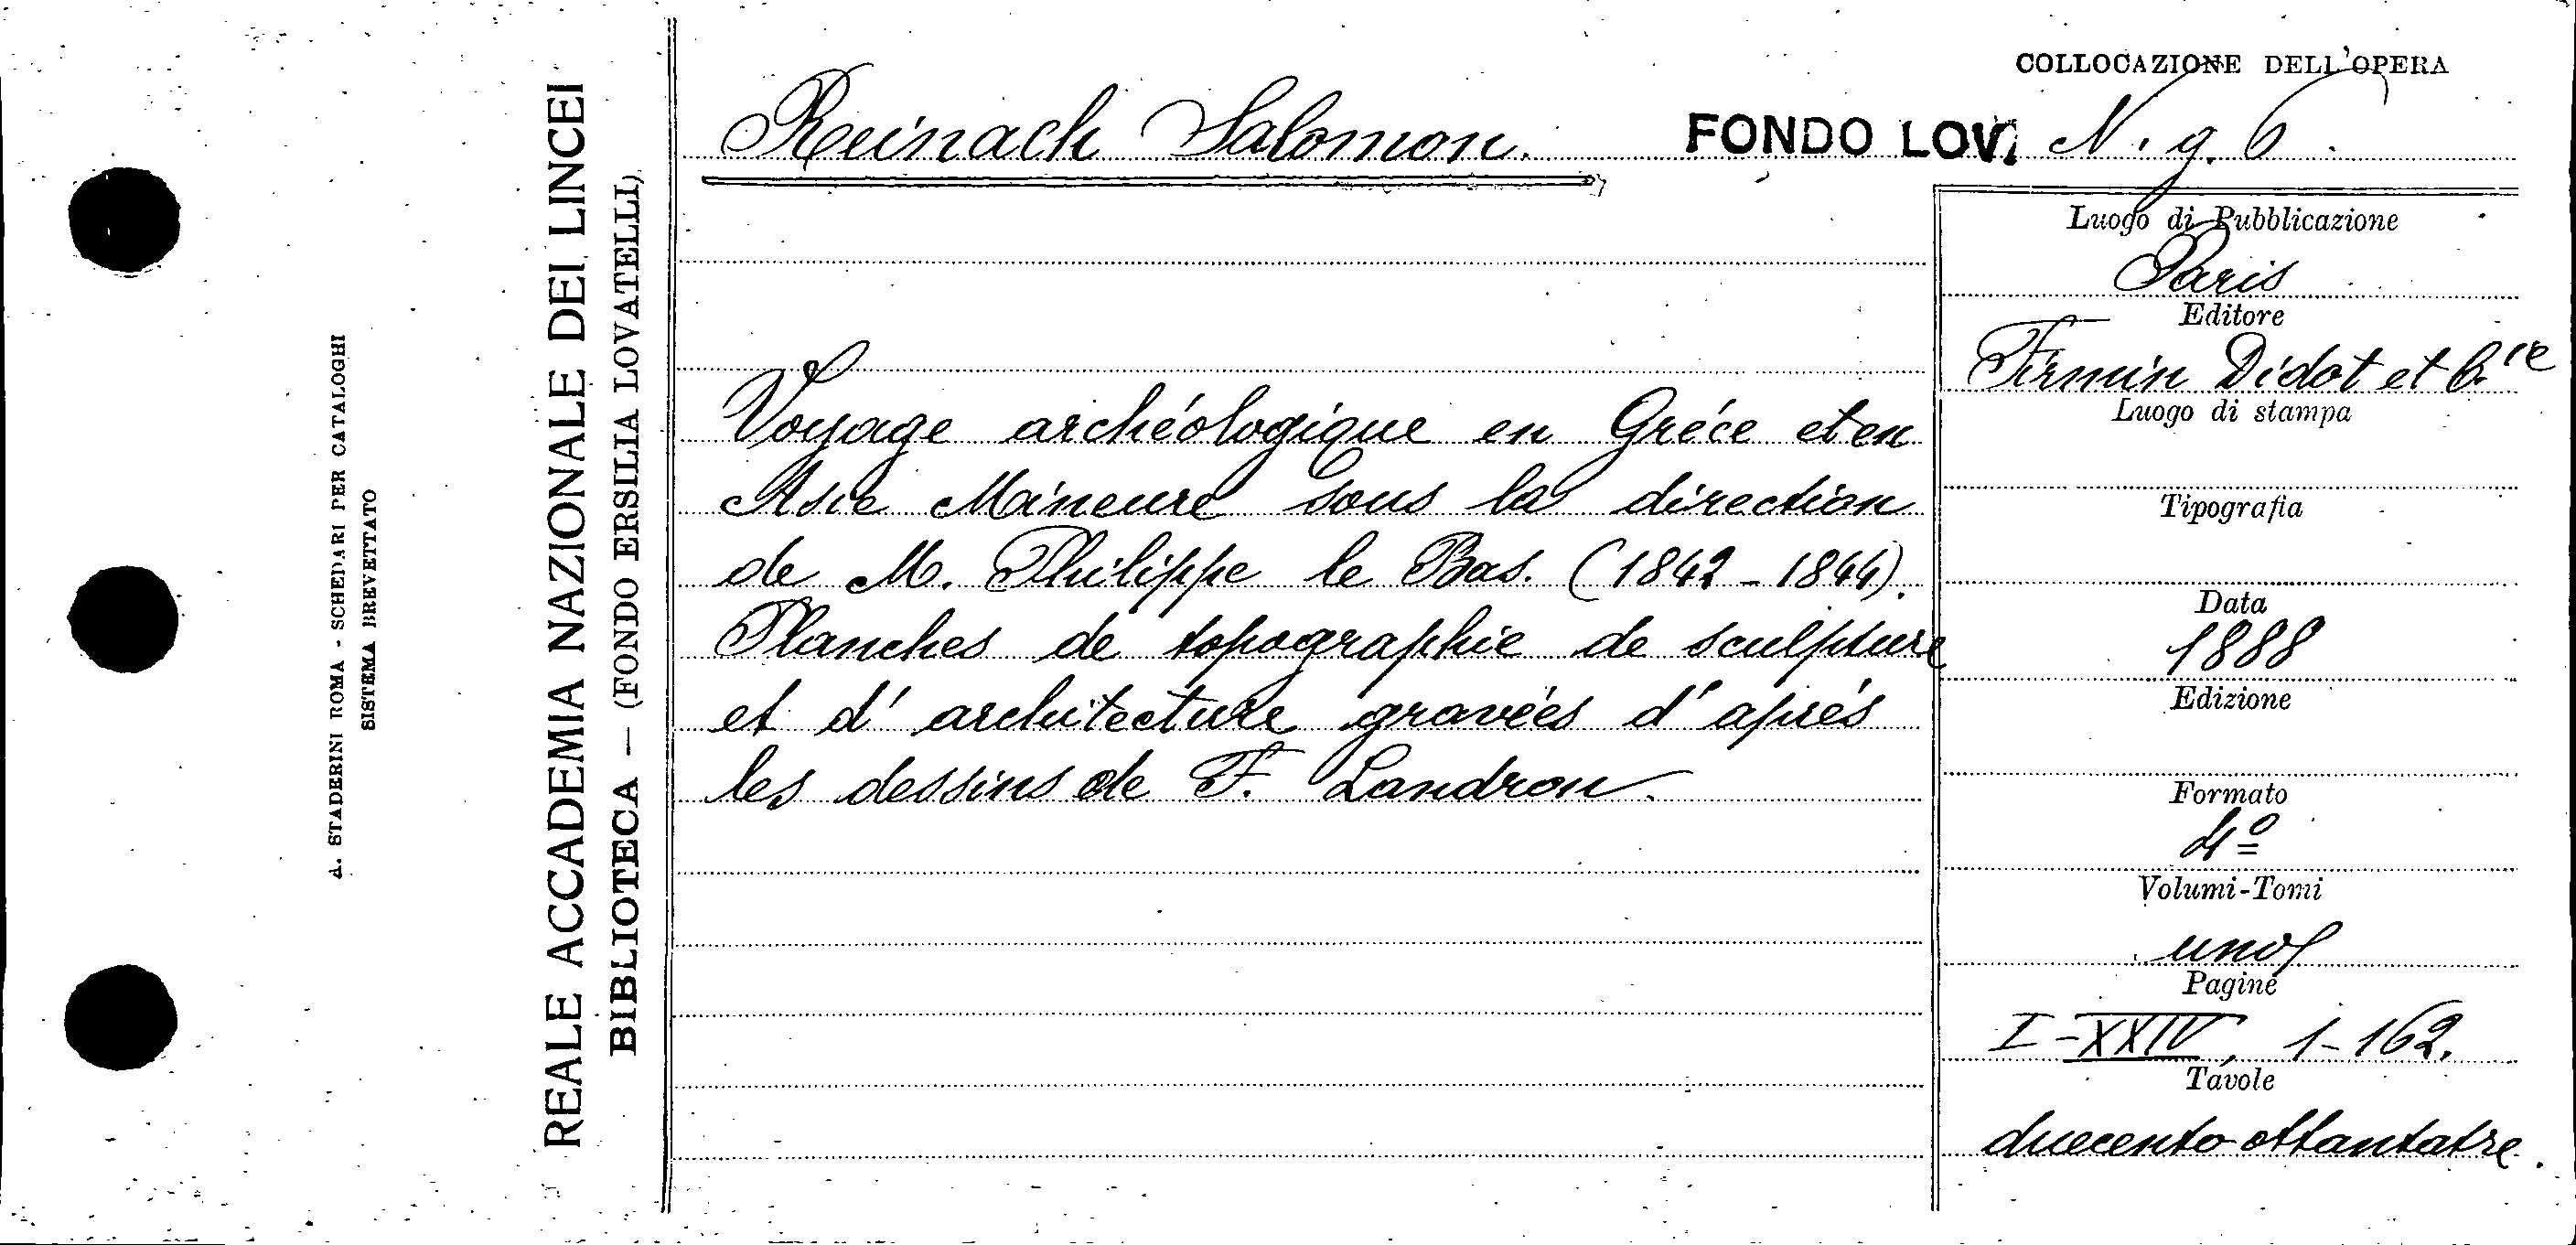 COLLOCAZIONE DELL'OPERA
Reinach Salomon.
FONDO LOV. N. g. 6.
Voyage archéologique en Gréce et en
Asie Mineure sous la direction
de M. Philippe le Bas. (1842-1844).
Planches de topographie de sculpture
et d'architecture gravées d'aprés
les dessins de F. Landron.
Luogo di Pubblicazione
Paris
Editore
Firmin Didot et C.ie
Luogo di stampa
Tipografia
Data
1888
Edizione
Formato
4º
Volumi-Tomi
uno
Pagine
I-XXIV, 1-162.
Tavole
duecento ottantatre.
REALE ACCADEMIA NAZIONALE DEI LINCEI
BIBLIOTECA — (FONDO ERSILIA LOVATELLI)
A. STADERINI ROMA - SCHEDARI PER CATALOGHI
SISTEMA BREVETTATO